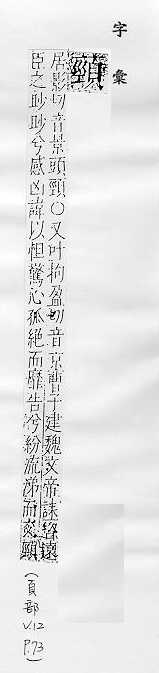 字彙
頸
居影切音景頭頸〇又叶拘盈切音京曹子建魏文帝誄咨遠
臣之眇眇兮感凶諱以怛驚心孤絕而靡告兮紛流涕而交頸
(頁部 V.12 P.73)